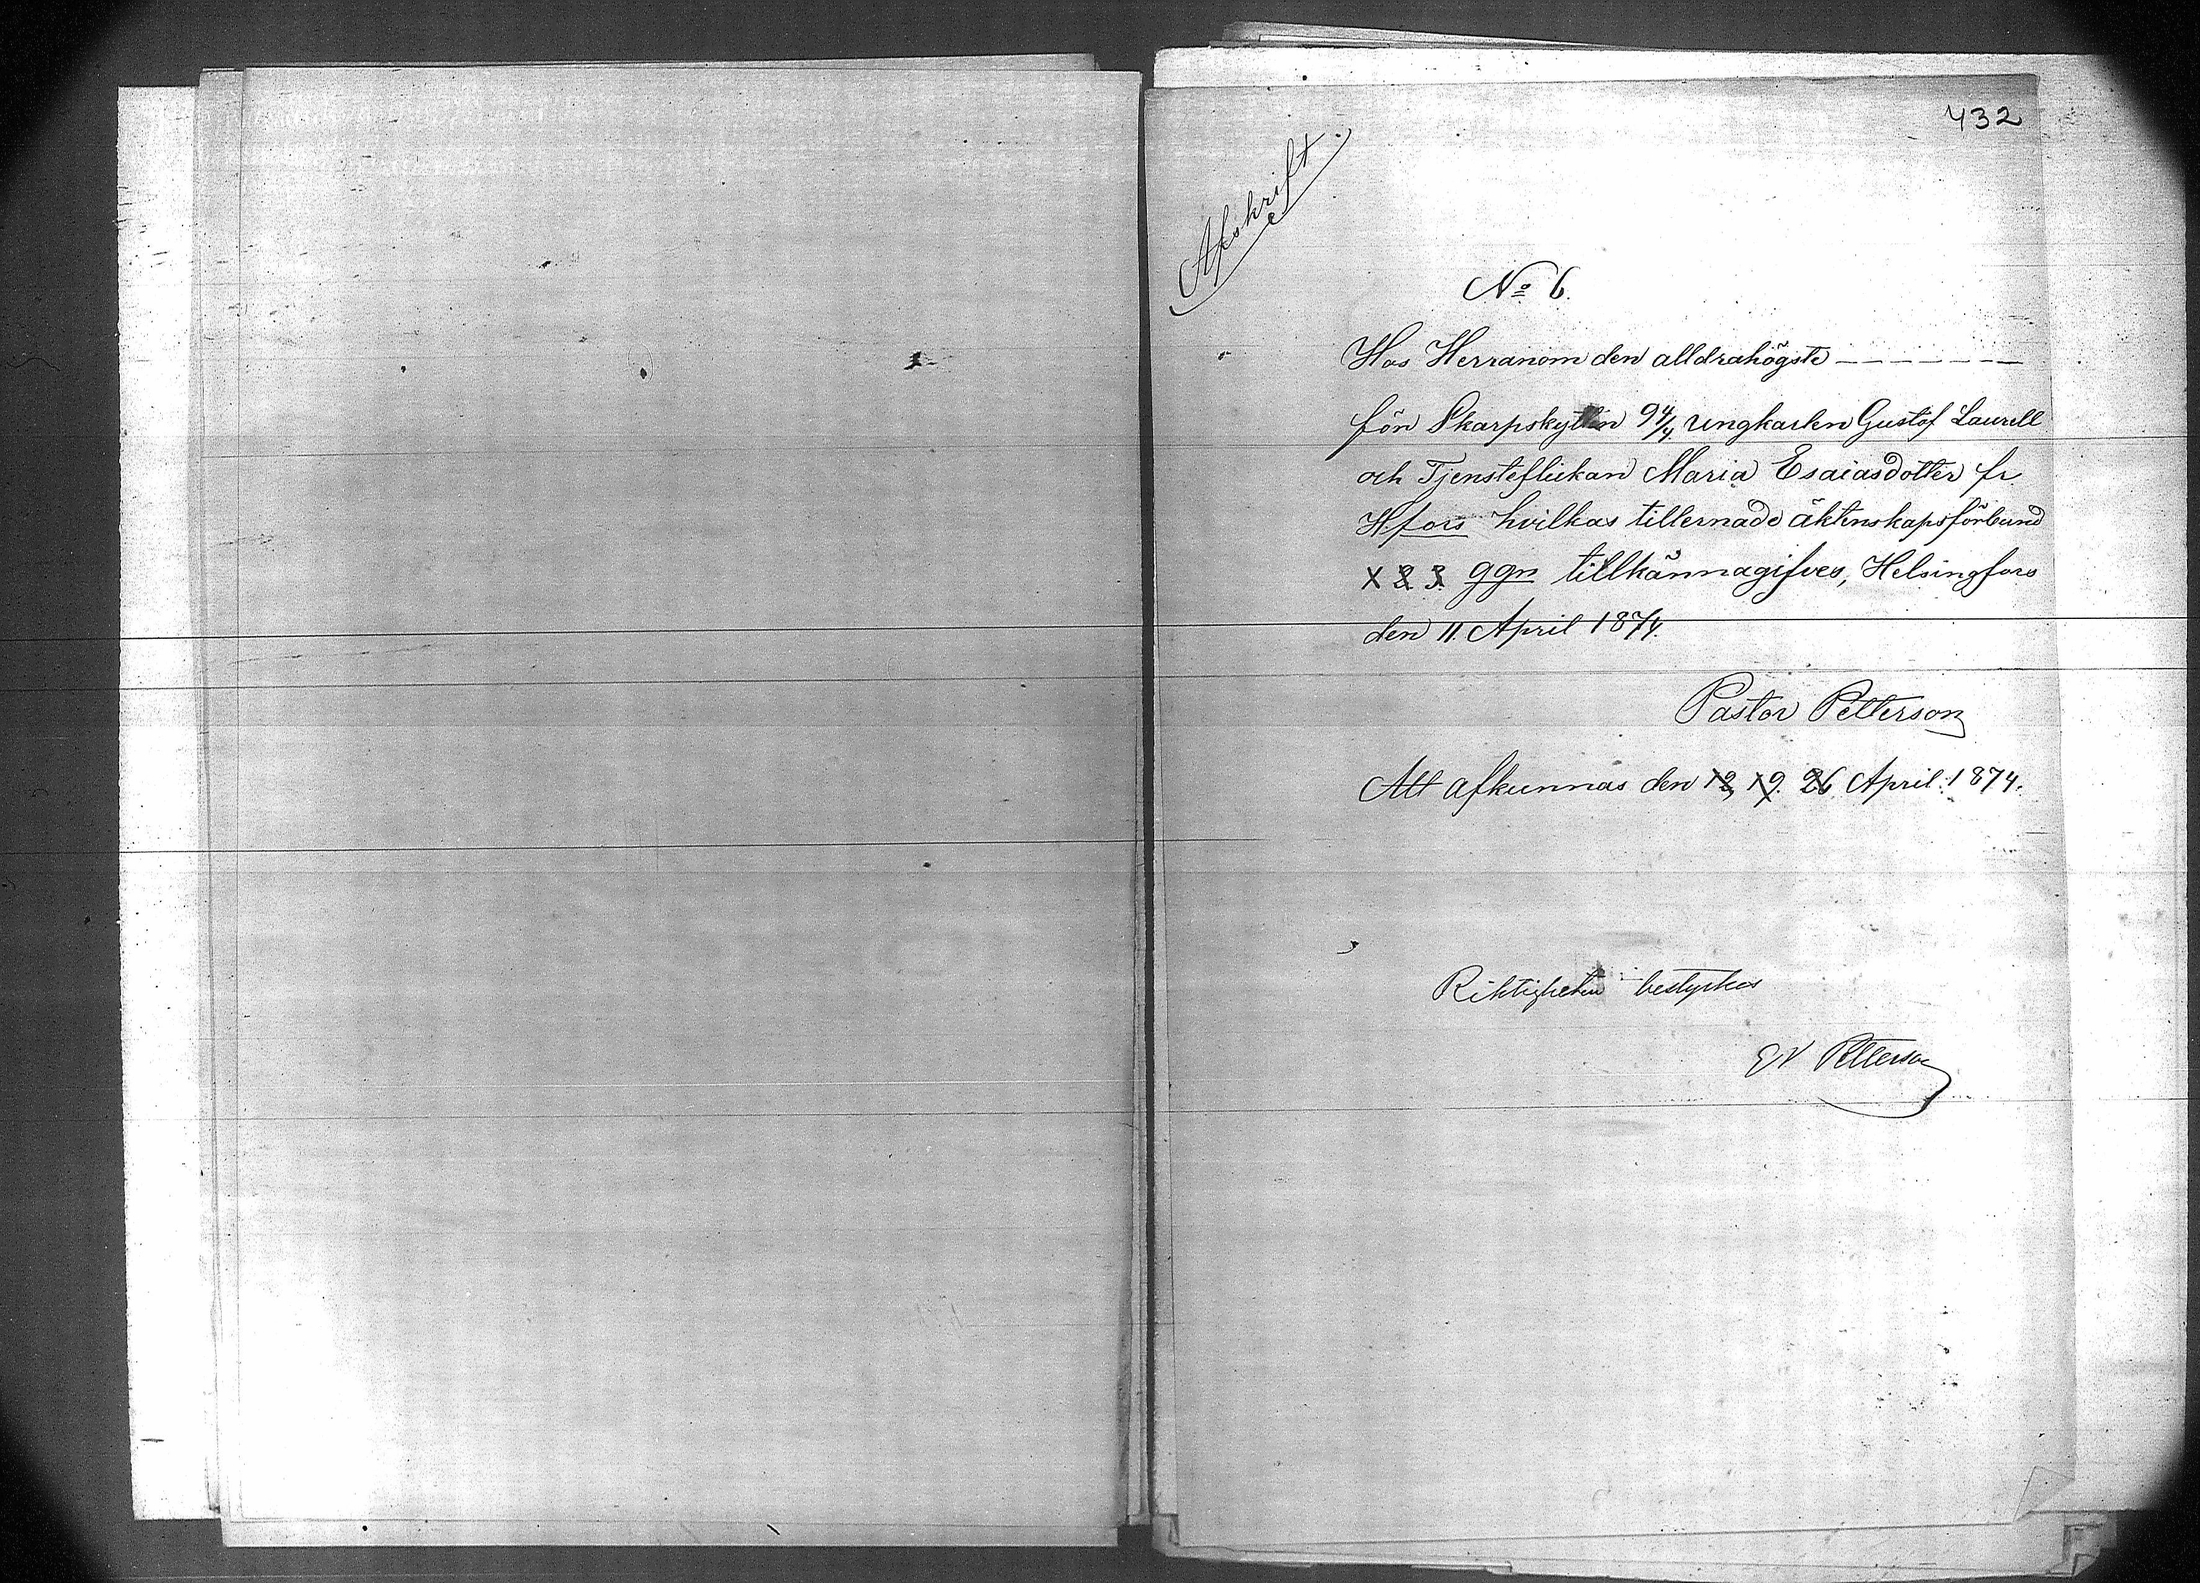 432
Afskrift.
No 6.
Hos Herranom den alldrahögste
för Skarpskytten 94/4 ungkarlen Gustof Laurell
och Tjensteflickan Maria Esaiasdotter fr.
H.fors hvilkas tillernade äktenskapsförbund
1 2 3. ggn tillkännagifves, Helsingfors
den 11. April 1874.
Pastor Petterson
Att afkunnas den 12, 19. 26 April 1874.
Riktigheten bestyrkes
Petterson